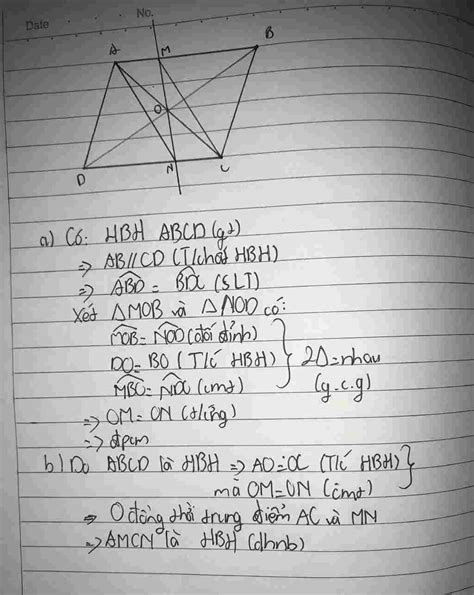 Date
No.
A M B
O
D N C
a) Có: HBH ABCD (gt)
=> AB//CD (T/chất HBH)
=> ABD = BDC (SLT)
Xét ΔMOB và ΔNOD có:
MOB = NOD (đối đỉnh)
DO = BO (T/c HBH) } 2Δ = nhau
MBO = NDC (cmt) (g.c.g)
=> OM = ON (t/ứng)
=> đpcm
b) Do ABCD là HBH => AO = OC (T/c HBH) }
mà OM = ON (cmt)
=> O đồng thời trung điểm AC và MN
=> AMCN là HBH (dhnb)